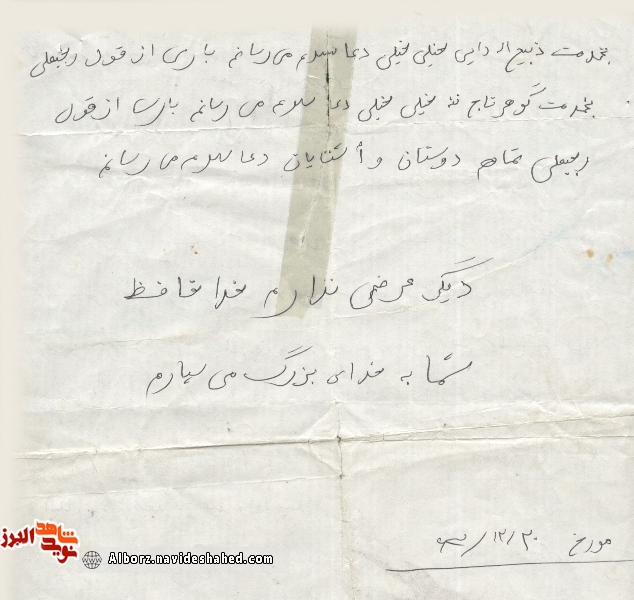 بخدمت ذبیح اله دایی خیلی خیلی دعا سلام می رسانم باری از قول رجبعلی
بخدمت گوهر تاج ننه خیلی خیلی دعا سلام می رسانم باری از قول
رجبعلی تمام دوستان و آشنایان دعا سلام می رسانم
دیگر عرضی ندارم خدا حافظ
شما به خدای بزرگ می سپارم
مورخ ۱۲/۲۰/
شاهد
نوید
البرز
Alborz.navideshahed.com